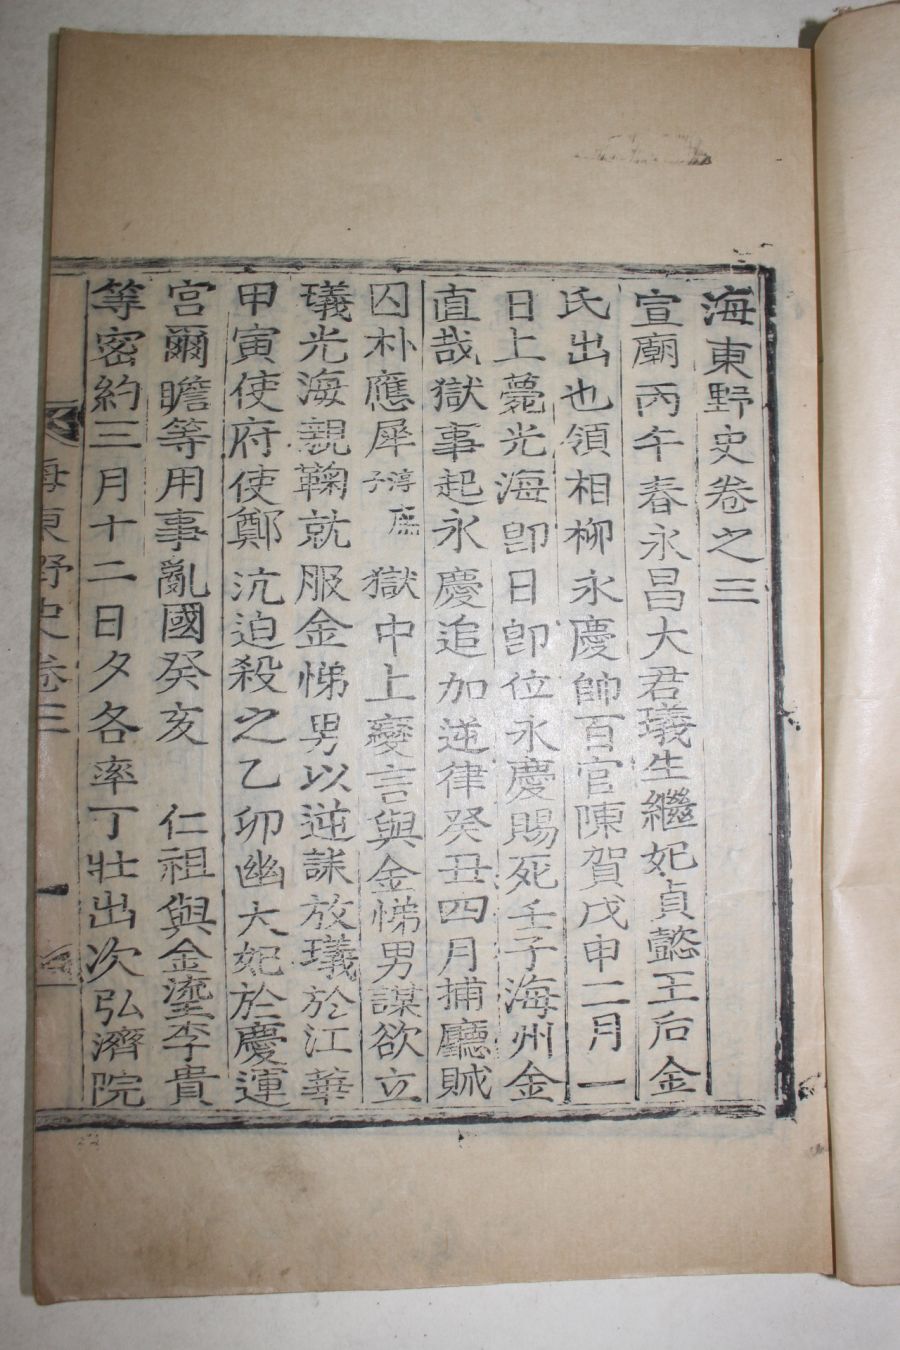 海東野史卷之三
宣廟丙午春永昌大君㼁生繼妃貞懿王后金
氏出也領相柳永慶帥百官陳賀戊申二月一
日上薨光海卽日卽位永慶賜死壬子海州金
直哉獄事起永慶追加逆律癸丑四月捕廳賊
囚朴應犀淳庶子獄中上變言與金悌男謀欲立
㼁光海親鞠就服金悌男以逆誅放㼁於江華
甲寅使府使鄭沆迫殺之乙卯幽大妃於慶運
宮爾瞻等用事亂國癸亥 仁祖與金瑬李貴
等密約三月十二日夕各率丁壯出次弘濟院
海東野史卷三